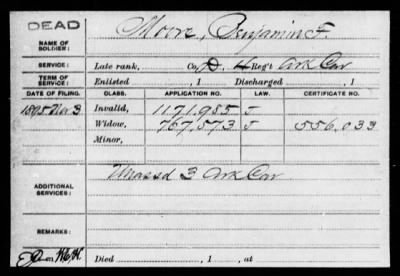 DEAD
NAME OF SOLDIER: Moore, Benjamin F.
SERVICE: Late rank, Co. D. 4 Reg't Ark Cav
TERM OF SERVICE: Enlisted , 1 Discharged , 1
DATE OF FILING. CLASS. APPLICATION NO. LAW. CERTIFICATE NO.
1895 Nov 3 Invalid, 1171,985 J
Widow, 767,573 J 556,033
Minor,
ADDITIONAL SERVICES: Unassd 3 Ark Cav
REMARKS:
Died , 1 , at